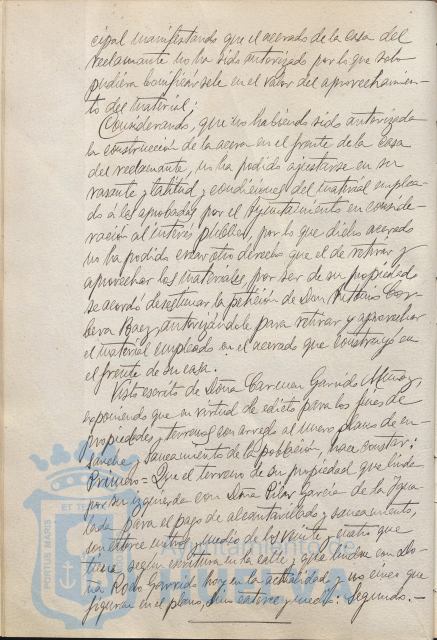 cipal manifestando que el acerado de la casa del
reclamante no ha sido autorizado por lo que solo
pudiera bonificársele en el valor del aprovechamien-
to del material;
Considerando, que no habiendo sido autorizada
la construcción de la acera en el frente de la casa
del reclamante, no ha podido ajustarse en su
rasante y latitud, y condiciones del material emplea-
do á las aprobadas por el Ayuntamiento en conside-
ración al interés público, por lo que dicho acerado
no ha podido crear otro derecho que el de retirar y
aprovechar los materiales por ser de su propiedad
se acordó desestimar la petición de Don Antonio
Baez, autorizándole para retirar y aprovechar
el material empleado en el acerado que construyó en
el frente de su casa.
Visto escrito de Doña Carmen Garrido Muñoz,
exponiendo que en virtud de edicto para los fines de
propiedades y terrenos con arreglo al nuevo plano de en-
sanche y saneamiento de la población, hace constar:
Primero= Que el terreno de su propiedad que linda
por su izquierda con Doña Pilar García de la
para el pago de alcantarillado y saneamiento,
son catorce metros y medio de los veinte y cuatro que
tiene según escritura en la calle; y que lindan con Do-
ña Garrido hoy en la actualidad y no cinco que
figuran en el plano, sino catorce y medio: Segundo.-
PORTUS MARIS ET TERRAE
Ayuntamiento de